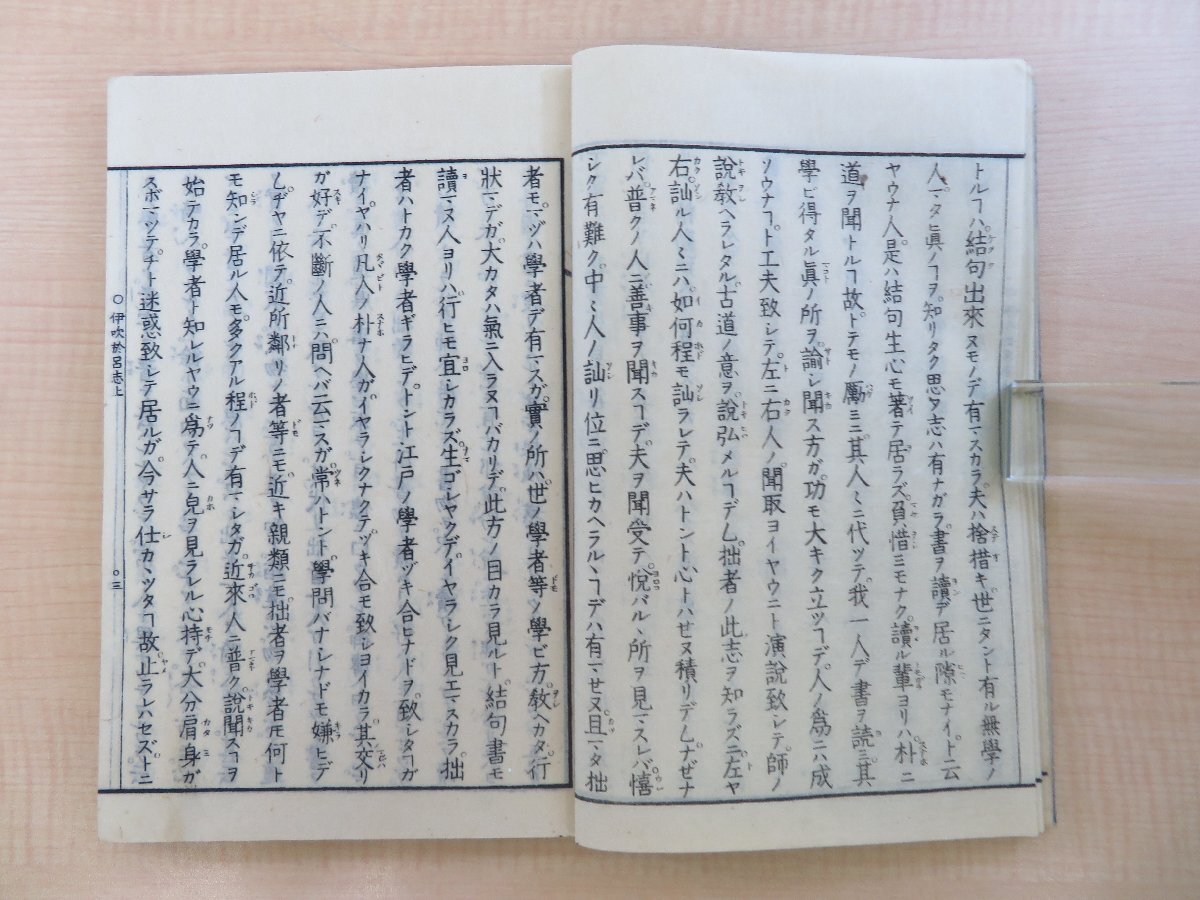 トルヿハ結句出來ヌモノデ有マスカラ夫ハ捨措キ世ニタント有ル無學ノ
人マタ眞ノヿヲ知リタク思フ志ハ有ナガラ書ヲ讀デ居ル隙モナイト云
ヤウナ人是ハ結句生心モ著テ居ラズ負惜ミモナク讀ル輩ヨリハ朴ニ
道ヲ聞トルヿ故トテモノ勵ミニ其人ミニ代ツテ我一人デ書ヲ讀ミ其
學ビ得タル眞ノ所ヲ諭シ聞ス方ガ功モ大キク立ツヿデ人ノ爲ニハ成
ソウナヿト工夫致シテ左ニ右人ノ聞取ヨイヤウニト演說致シテ師ノ
說教ヘラレタル古道ノ意ヲ說弘メルヿデム拙者ノ此志ヲ知ラズニ左ヤ
右訕ル人ミニハ如何程モ訕ラレテ夫ハトント心トハせヌ積リデムナゼナ
レバ普クノ人ニ善事ヲ聞スヿデ夫ヲ聞受テ悅バルヽ所ヲ見マスレバ憘
シク有難ク中ミ人ノ訕リ位ニ思ヒカヘラルヽヿデハ有マせヌ且マタ拙
者モマヅハ學者デ有マスガ實ノ所ハ世ノ學者等ノ學ビ方教ヘカタ行
狀マデガ大カタハ氣ニ入ラヌヿバカリデ此方ノ目カラ見ルト結句書モ
讀マヌ人ヨリハ行ヒモ宜シカラズ生ゴシヤクデイヤラシク見エマスカラ拙
者ハトカク學者ギラヒデトント江戶ノ學者ヅキ合ヒナドヲ致シタヿガ
ナイヤハリ凡人ノ朴ナ人ガイヤラシクナクテヅキ合モ致シヨイカラ其交リ
ガ好デ不斷ノ人ニハ問ヘバ云マスガ常ハトント學問バナシナドモ嫌ヒデ
ムヂヤニ依テ近所鄰リノ者等ニモ近キ親類ニモ拙者ヲ學者𪜈何ト
モ知ンデ居ル人モ多クアル程ノヿデ有マシタガ近來人ニ普ク說聞スヿヲ
始テカラ學者ト知レルヤウニ爲テ人ニ皃ヲ見ラルヽ心持デ大分肩身ガ
スボマツテチト迷惑致シテ居ルガ今サラ仕カヽツタヿ故止ラレハセズトニ
○伊吹於呂志上 ○三